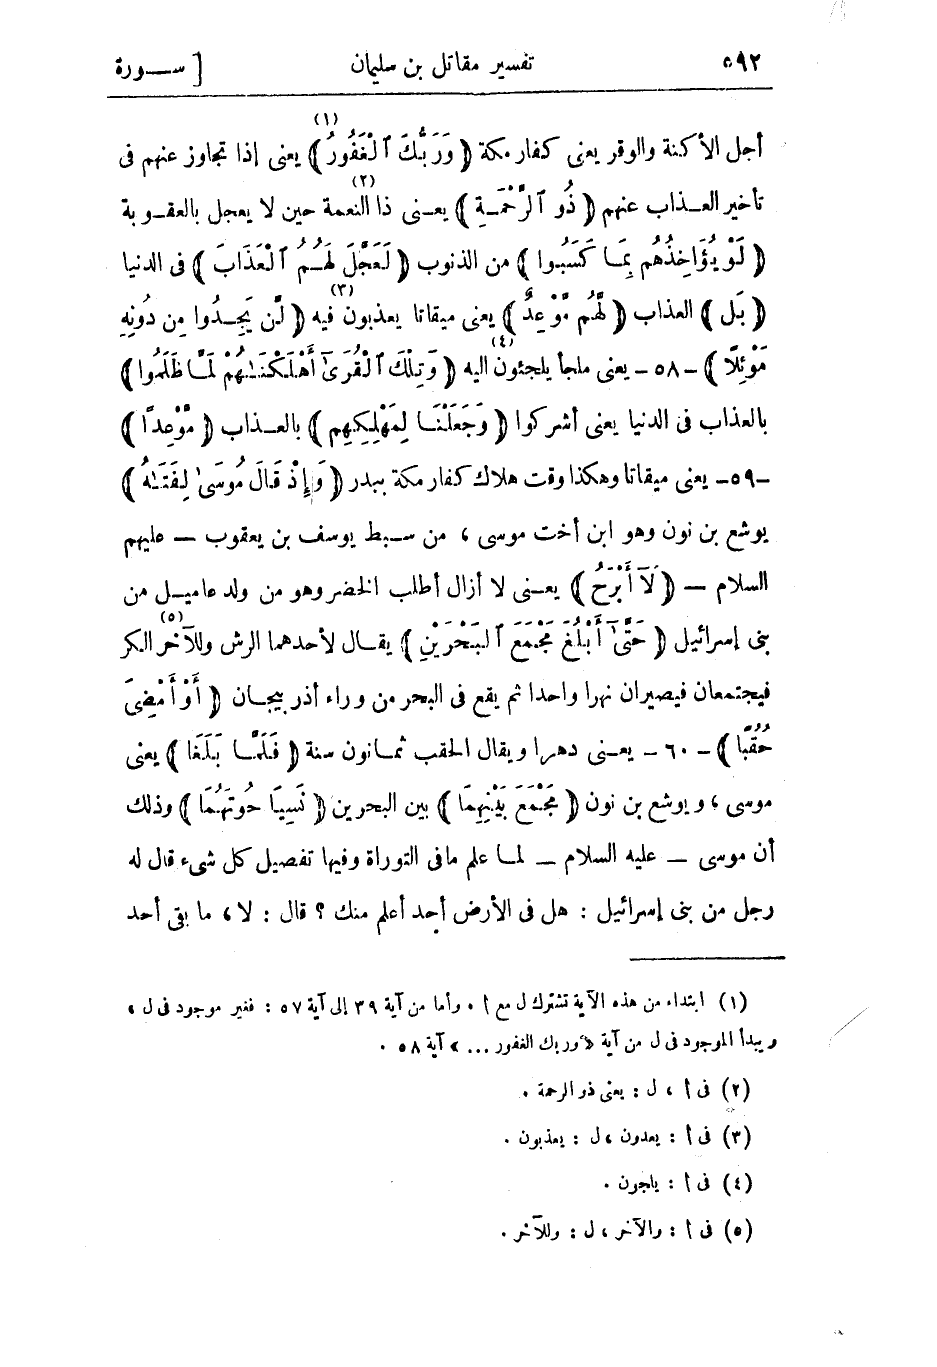 ٥٩٢ تفسير مقاتل بن سليمان [ سـورة
أجل الأكنة والوقر يعنى كفار مكة ﴿ وَرَبُّكَ ٱلْغَفُورُ ﴾ (١) يعنى إذا تجاوز عنهم فى
تأخير العـذاب عنهم ﴿ ذُو ٱلرَّحْمَـةِ ﴾ يعـنى ذا النعمة (٢) حين لا يعجل بالعقـوبة
﴿ لَوْ يُؤَاخِذُهُم بِمَـا كَسَبُوا ﴾ من الذنوب ﴿ لَعَجَّلَ لَهُـمُ ٱلْعَذَابَ ﴾ فى الدنيا
﴿ بَل ﴾ العذاب ﴿ لَّهُم مَّوْعِدٌ ﴾ يعنى ميقاتا يعذبون (٣) فيه ﴿ لَّن يَجِـدُوا مِن دُونِهِ
مَوْئِلًا ﴾ - ٥٨ - يعنى ملجأ يلجئون (٤) اليه ﴿ وَتِلْكَ ٱلْقُرَىٰٓ أَهْلَكْنَـٰهُمْ لَمَّا ظَلَمُوا ﴾
بالعذاب فى الدنيا يعنى أشركوا ﴿ وَجَعَلْنَـا لِمَهْلِكِهِم ﴾ بالعـذاب ﴿ مَّوْعِدًا ﴾
- ٥٩ - يعنى ميقاتا وهكذا وقت هلاك كفار مكة ببدر ﴿ وَإِذْ قَالَ مُوسَىٰ لِفَتَـٰهُ ﴾
يوشع بن نون وهو ابن أخت موسى ، من سـبط يوسف بن يعقوب — عليهم
السلام — ﴿ لَآ أَبْرَحُ ﴾ يعـنى لا أزال أطلب الخضر وهو من ولد عاميـل من
بنى إسرائيل ﴿ حَتَّىٰٓ أَبْلُغَ مَجْمَعَ ٱلبَحْرَيْنِ ﴾ يقـال لأحدهما الرش وللآخر (٥) الكر
فيجتمعان فيصيران نهرا واحدا ثم يقع فى البحر من وراء أذربيجـان ﴿ أَوْ أَمْضِىَ
حُقُبًا ﴾ - ٦٠ - يعـنى دهرا ويقال الحقب ثمـانون سنة ﴿ فَلَمَّـا بَلَغَا ﴾ يعنى
موسى ، ويوشع بن نون ﴿ مَجْمَعَ بَيْنِهِمَا ﴾ بين البحرين ﴿ نَسِيَا حُوتَهُمَا ﴾ وذلك
أن موسى — عليه السلام — لمـا علم مافى التوراة وفيها تفصيل كل شىء قال له
رجل من بنى إسرائيل : هل فى الأرض أحد أعلم منك ؟ قال : لا ، ما بقى أحد
(١) ابتداء من هذه الآية تشترك ل مع أ . وأما من آية ٣٩ إلى آية ٥٧ : فغير موجود فى ل ،
ويبدأ الموجود فى ل من آية «وربك الغفور ... » آية ٥٨ .
(٢) فى أ ، ل : يعنى ذو الرحمة .
(٣) فى أ : يعدون ، ل : يعذبون .
(٤) فى أ : ياجون .
(٥) فى أ : والآخر ، ل : وللآخر .